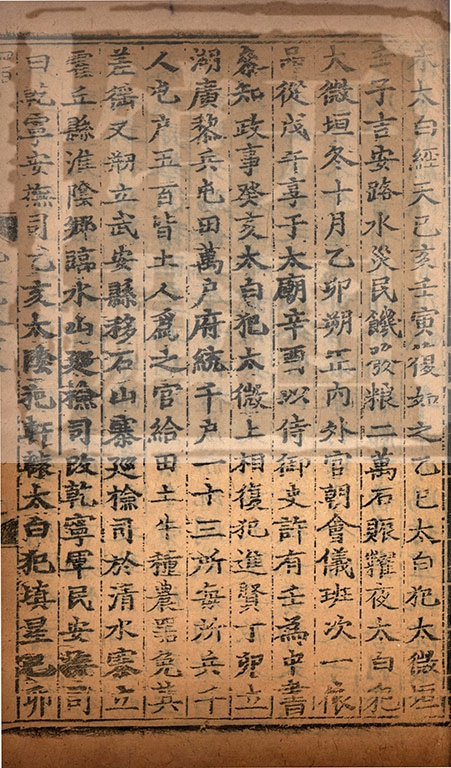 未太白經天己亥壬寅亦復如之乙巳太白犯太微垣
壬子吉安路水災民饑發粮二萬石賑糶夜太白犯
太微垣冬十月乙卯朔正内外官朝會儀班次一依
品從戊午享于太廟辛酉以侍御史許有壬為中書
叅知政事癸亥太白犯太微上相復犯進賢丁卯立
湖廣黎兵屯田萬户府統千户一十三所每所兵千
人屯户五百皆土人爲之官給田土牛種農器免其
差徭又剏立武安縣移石山寨廵檢司於清水寨立
霍丘縣淮陰鄉臨水山廵檢司改乾寧軍民安撫司
曰乾寧安撫司乙亥太陰犯軒轅太白犯填星己卯